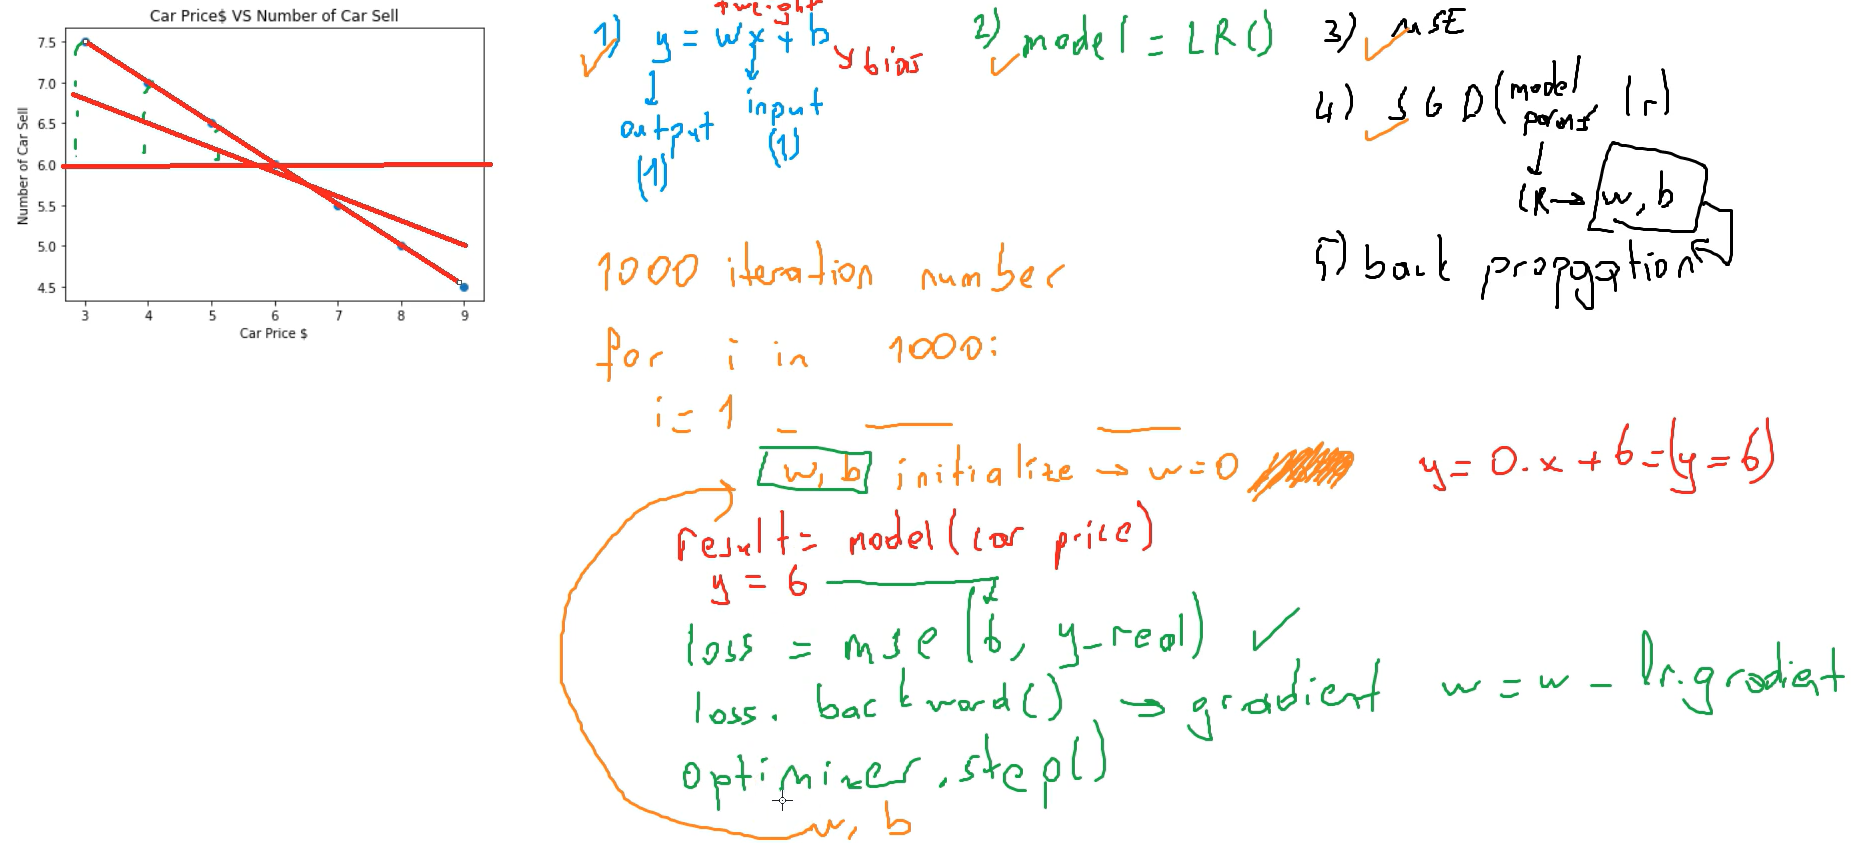 Car Price$ VS Number of Car Sell
Number of Car Sell
7.5
7.0
6.5
6.0
5.5
5.0
4.5
3 4 5 6 7 8 9
Car Price $
1) y = wx + b
weight
bias
output
(1)
input
(1)
2) model = LR()
3) MSE
4) SGD(model
params lr)
LR → w, b
5) back propgation
1000 iteration number
for i in 1000:
i = 1
w, b initialize → w=0
y = 0.x + 6 = (y = 6)
result = model(car price)
y = 6
loss = mse(6, y_real)
loss.backward() → gradient w = w - lr.gradient
optimizer.step()
w, b